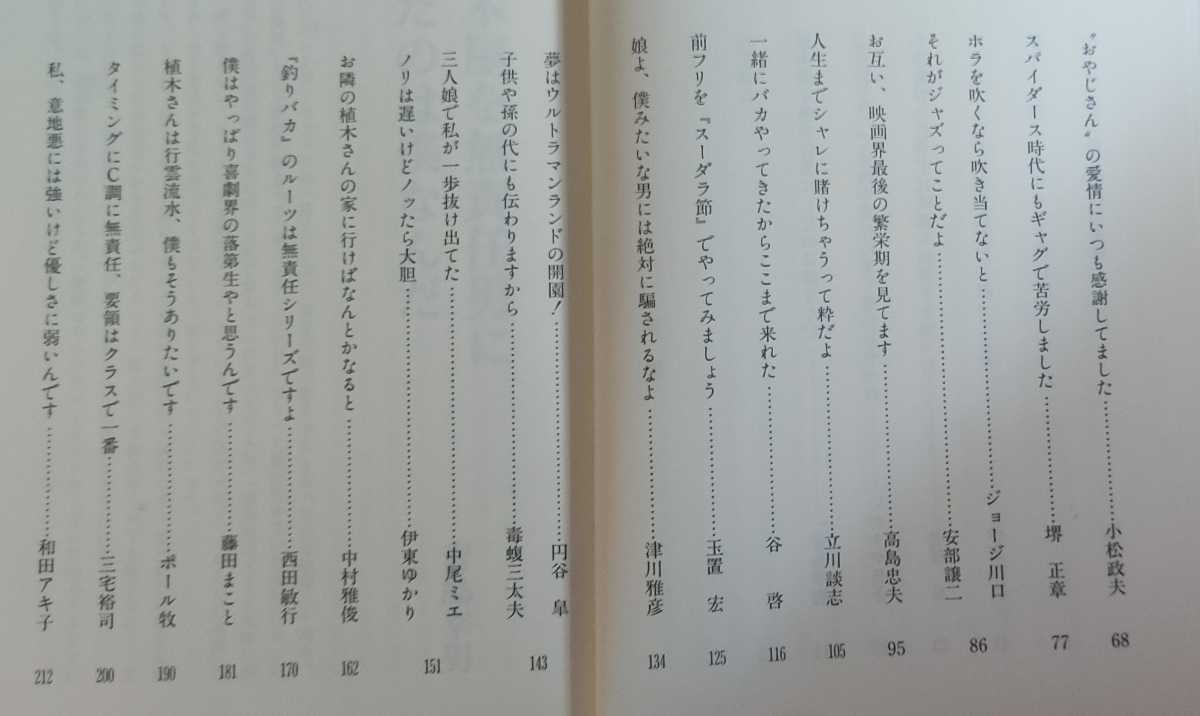 〝おやじさん〟の愛情にいつも感謝してました……………小松政夫 68
スパイダース時代にもギャグで苦労しました……………堺 正章 77
ホラを吹くなら吹き当てないと……………ジョージ川口 86
それがジャズってことだよ……………安部譲二
お互い、映画界最後の繁栄期を見てます……………高島忠夫 95
人生までシャレに賭けちゃうって粋だよ……………立川談志 105
一緒にバカやってきたからここまで来れた……………谷 啓 116
前フリを『スーダラ節』でやってみましょう……………玉置 宏 125
娘よ、僕みたいな男には絶対に騙されるなよ……………津川雅彦 134
夢はウルトラマンランドの開園!……………円谷 皐
子供や孫の代にも伝わりますから……………毒蝮三太夫 143
三人娘で私が一歩抜け出てた……………中尾ミエ
ノリは遅いけどノッたら大胆……………伊東ゆかり 151
お隣の植木さんの家に行けばなんとかなると……………中村雅俊 162
『釣りバカ』のルーツは無責任シリーズですよ……………西田敏行 170
僕はやっぱり喜劇界の落第生やと思うんです……………藤田まこと 181
植木さんは行雲流水、僕もそうありたいです……………ポール牧 190
タイミングにC調に無責任、要領はクラスで一番……………三宅裕司 200
私、意地悪には強いけど優しさに弱いんです……………和田アキ子 212